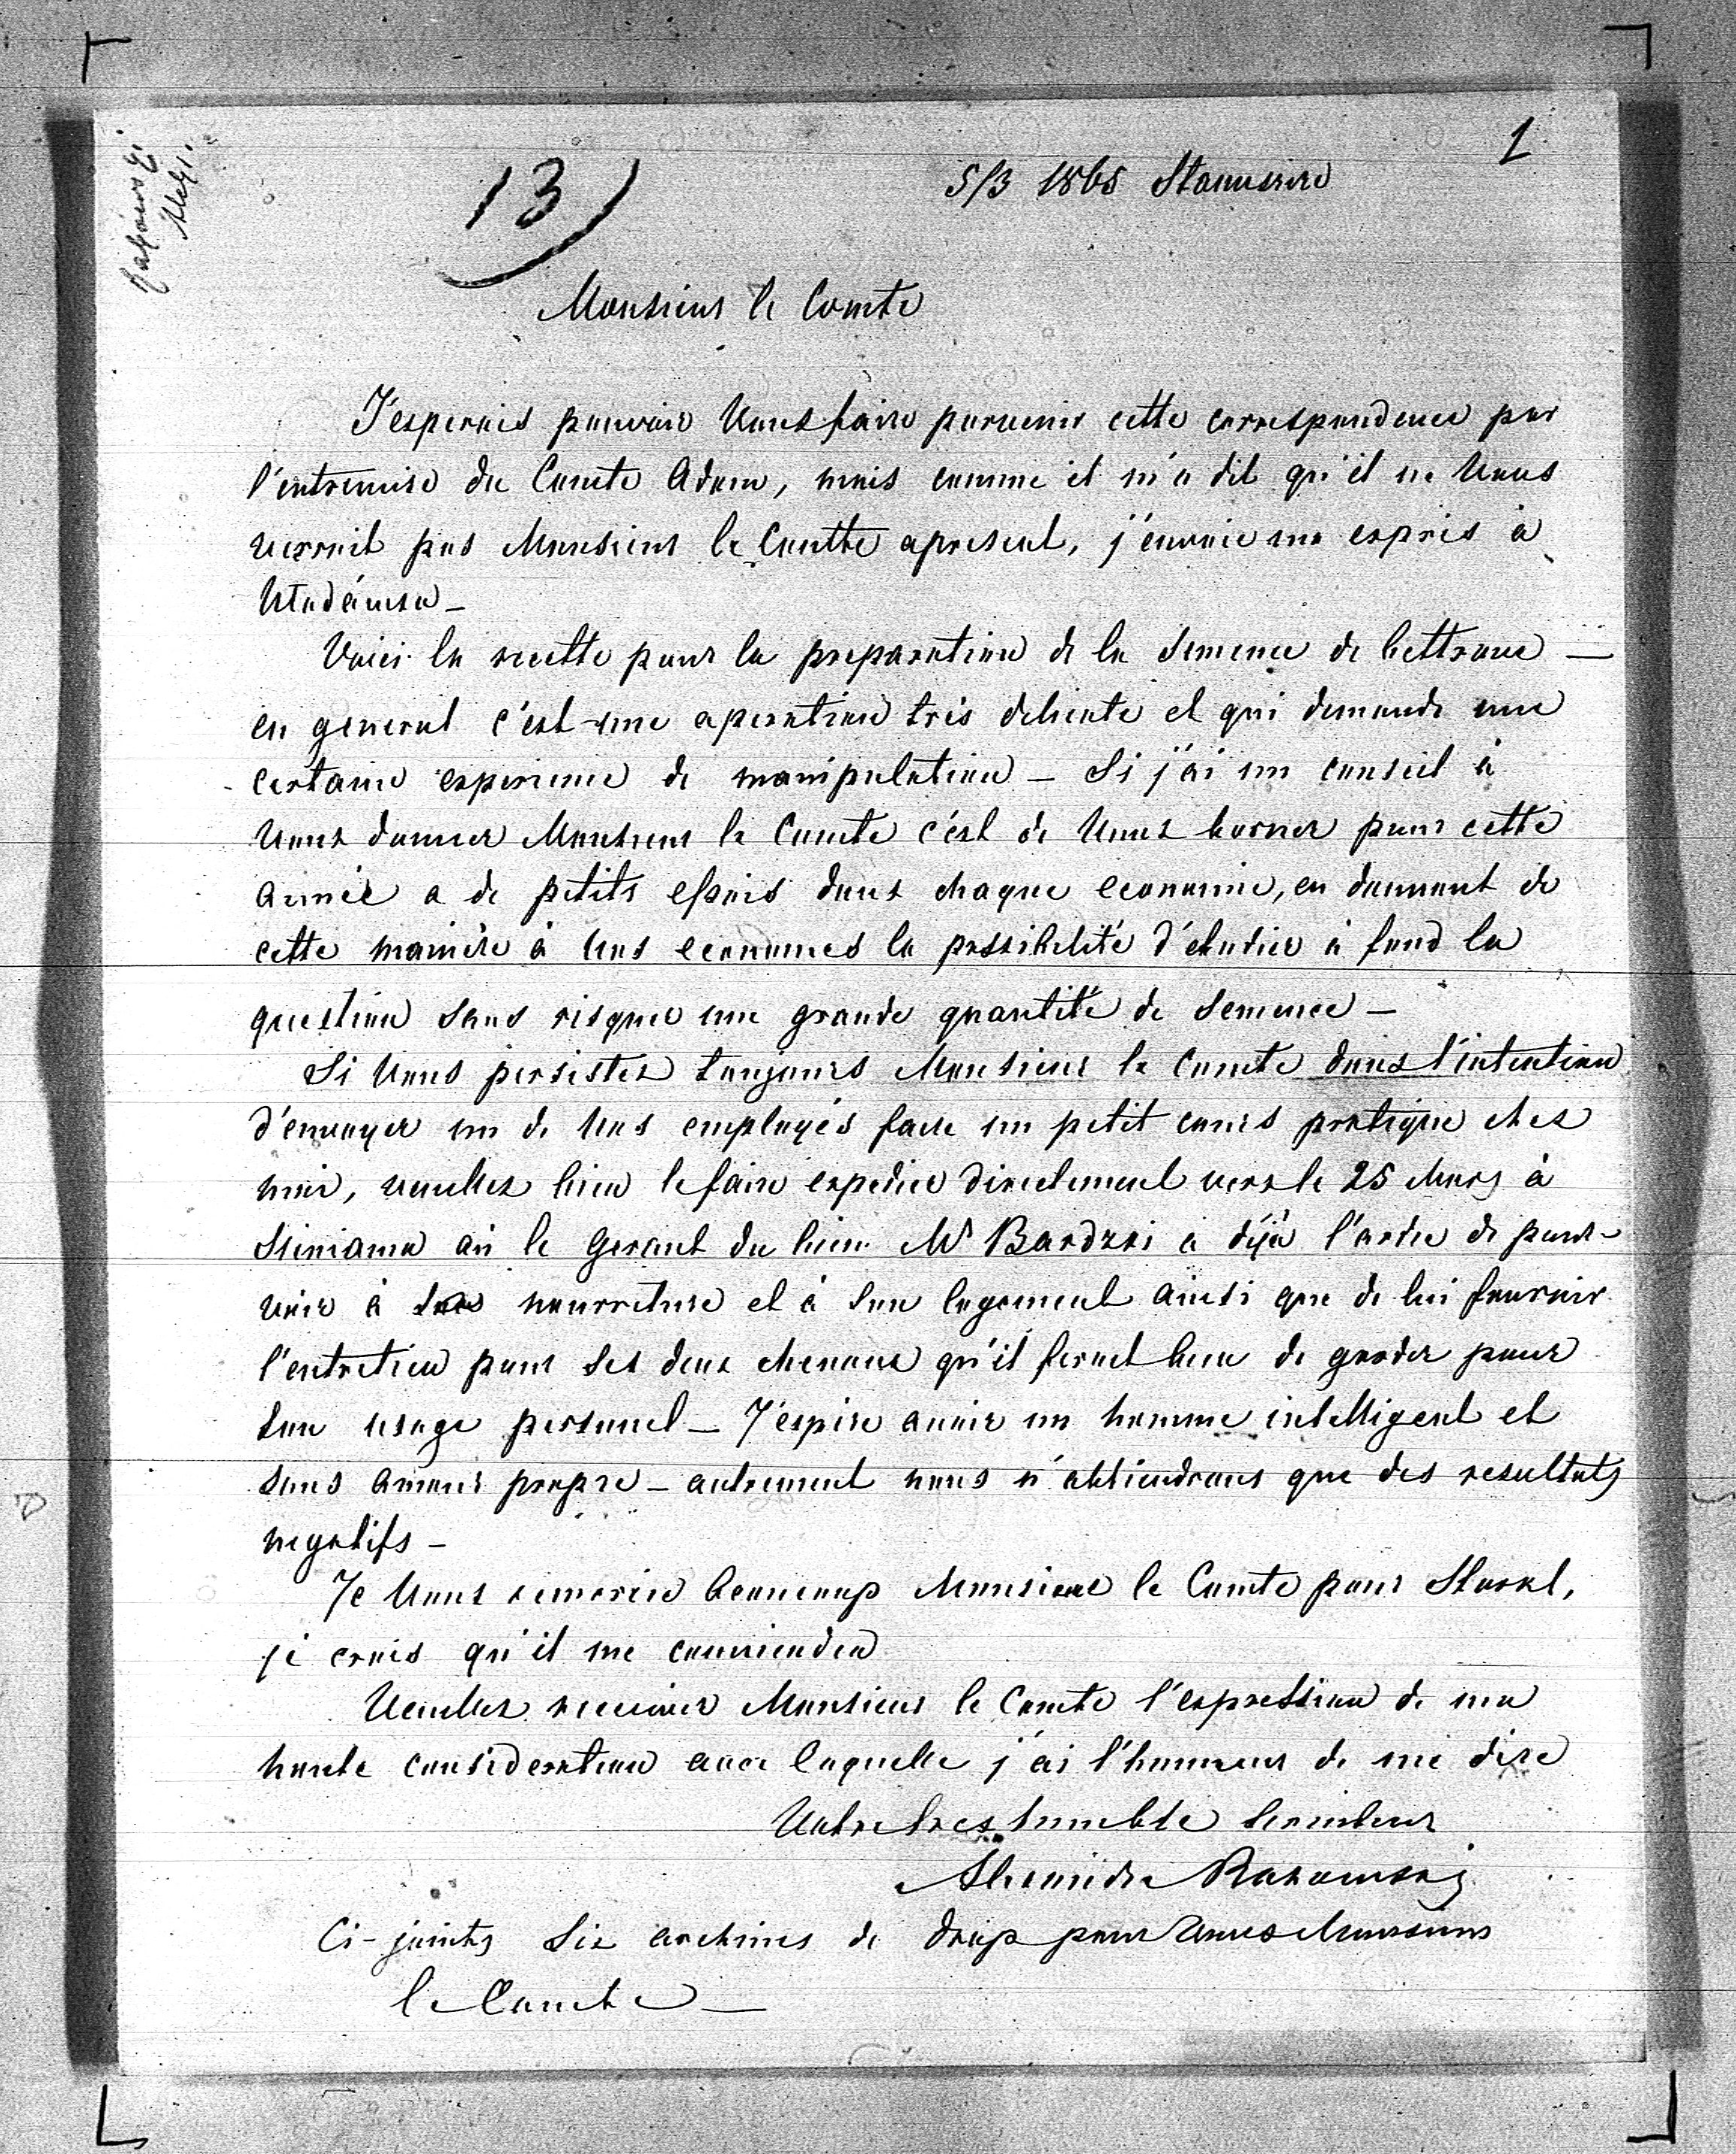 1
13)
5/3 1865
Monsieur le Comte
J'esperais pouvoir Vous faire parvenir cette correspondence par
l'entremise du Comte Adam, mais comme il m'a dit qu'il ne Vous
verrait pas Monsieur le Comtte apresent, j'envoie un expris à
Voici la recette pour la preparation de la semence de bettrave —
en general c'est une operation très delicate et qui demande une
certaine experience de manipulation — Si j'ai un conseil à
Vous donner Monsieur le Comte c'est de Vous borner pour cette
année a de petits essais dans chaque economie, en donnant de
cette manière à Vos economes la possibilité d'etudier à fond la
question sans risquer une grande quantité de semence —
Si Vous persistez toujours Monsieur le Comte dans l'intention
d'envoyer un de Vos employés faire un petit cours pratique chez
moi, veuillez bien le faire expedier directement vers le 25 Mars à
où le Gerant du bien Mr Bardzki a déjà l'ordre de pour-
voir à sa nourreture et à son logement ainsi que de lui fournir
l'entretien pour ses deux chevaux qu'il ferait bien de garder pour
son usage personel — J'espire avoir un homme intelligent et
sans amour propre — autrement nous n'obtiendrons que des resultats
negatifs —
Je Vous remercie beaucoup Monsieur le Comte pour
je crois qu'il me conviendra
Veuillez recevoir Monsieur le Comte l'expression de ma
haute consideration avec laquelle j'ai l'honneur de me dire
Votre tres humble Serviteur
Ci-joints Six archines de drap pour Vous Monsieur
le Comte —